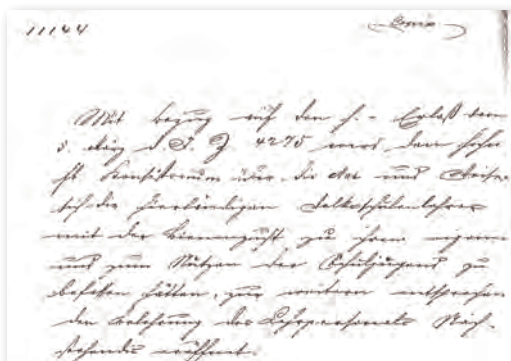 11144
Copia
Mit Bezug auf den h. Erlaß vom
5. März d. J. Z 4275 wird dem hohen
Konsistorium über die Art und Weise
sich die Volksschullehrer
mit der Bienenzucht zu ihrem eigenen
und zum Nutzen der Schuljugend zu
befaßen hätten, zur weitern entsprechen
den Belehrung des Lehrpersonals Nach-
stehendes eröffnet.